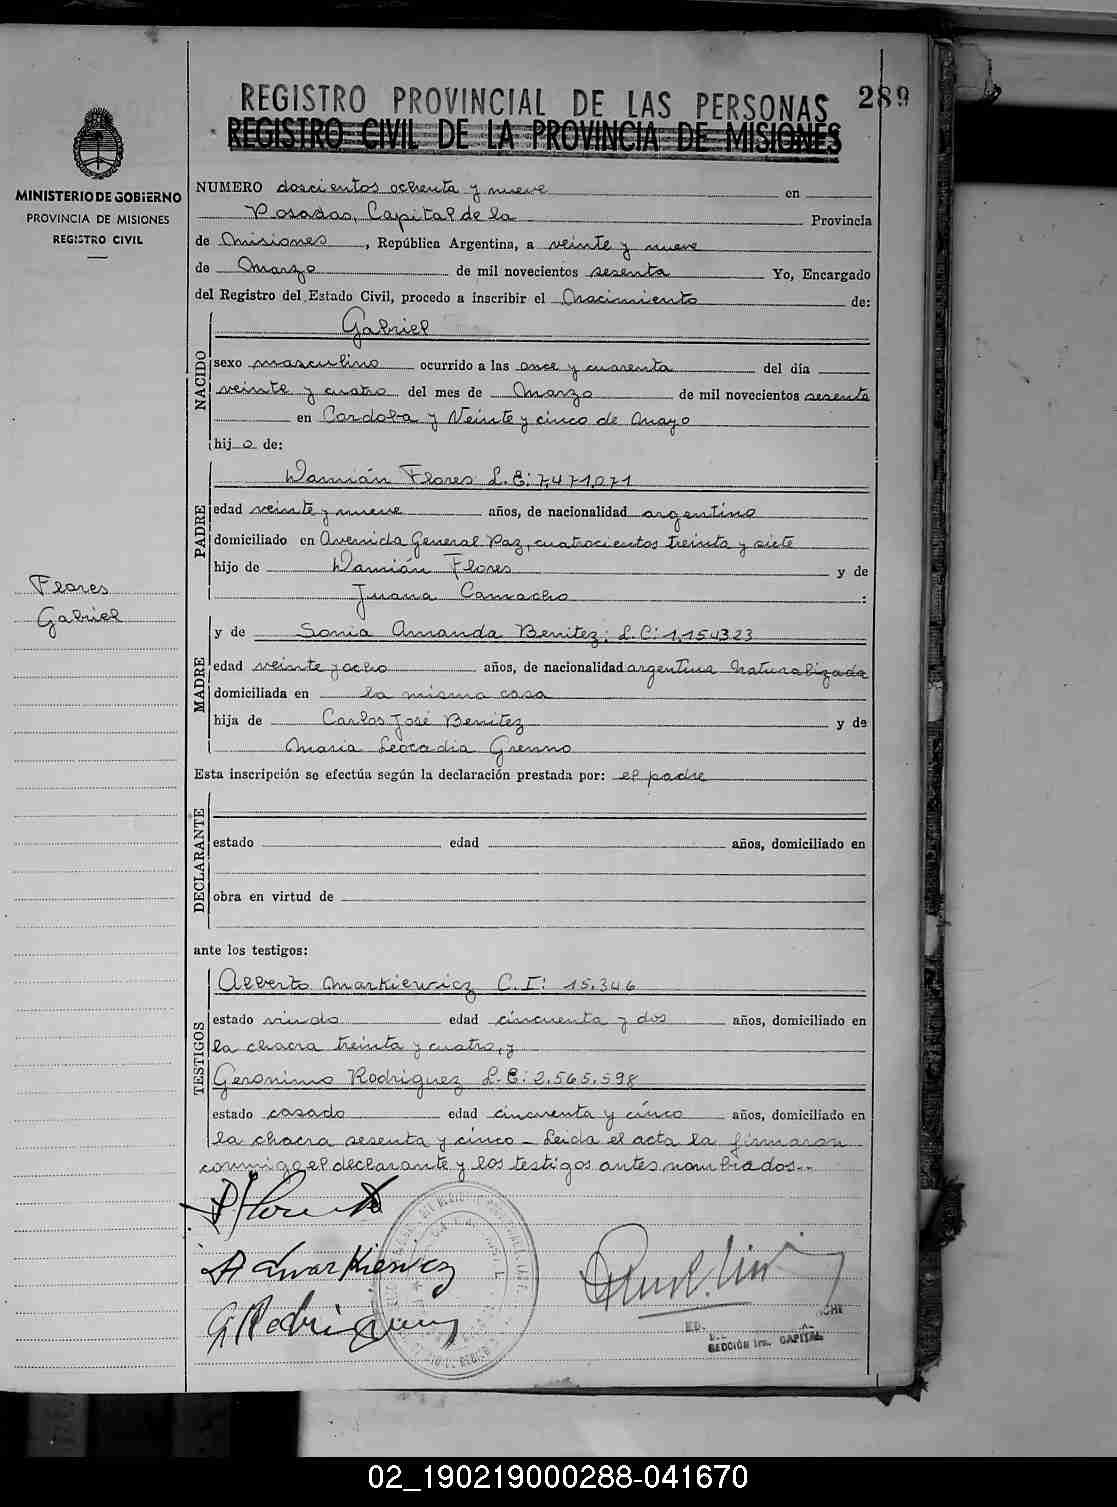 REGISTRO PROVINCIAL DE LAS PERSONAS
289
REGISTRO CIVIL DE LA PROVINCIA DE MISIONES
MINISTERIO DE GOBIERNO
PROVINCIA DE MISIONES
REGISTRO CIVIL
NUMERO doscientos ochenta y nueve en
Posadas, Capital de la Provincia
de Misiones, República Argentina, a veinte y nueve
de Marzo de mil novecientos sesenta Yo, Encargado
del Registro del Estado Civil, procedo a inscribir el Nacimiento de:
Gabriel
NACIDO
sexo masculino ocurrido a las once y cuarenta del día
veinte y cuatro del mes de Marzo de mil novecientos sesenta
en Cordoba y Veinte y cinco de Mayo
hijo de:
Damián Flores L.E: 7,471,071
PADRE
edad veinte y nueve años, de nacionalidad argentino
domiciliado en Avenida General Paz, cuatrocientos treinta y siete
hijo de Damián Flores y de
Juana Camacho :
Flores
Gabriel
y de Sonia Amanda Benitez: L.C: 1,154323
MADRE
edad veinte y ocho años, de nacionalidad argentina Naturalizada
domiciliada en la misma casa
hija de Carlos José Benitez y de
Maria Leocadia Grenno
Esta inscripción se efectúa según la declaración prestada por: el padre
DECLARANTE
estado edad años, domiciliado en
obra en virtud de
ante los testigos:
Alberto Markiewicz C.I: 15.346
TESTIGOS
estado viudo edad cincuenta y dos años, domiciliado en
la chacra treinta y cuatro, y
Geronimo Rodriguez L.E: 2.565.598
estado casado edad cincuenta y cinco años, domiciliado en
la chacra sesenta y cinco - Leida el acta la firmaron
conmigo el declarante y los testigos antes nombrados.-
A Markiewicz
G Rodriguez
SECCIÓN 1ra. CAPITAL
02_190219000288-041670